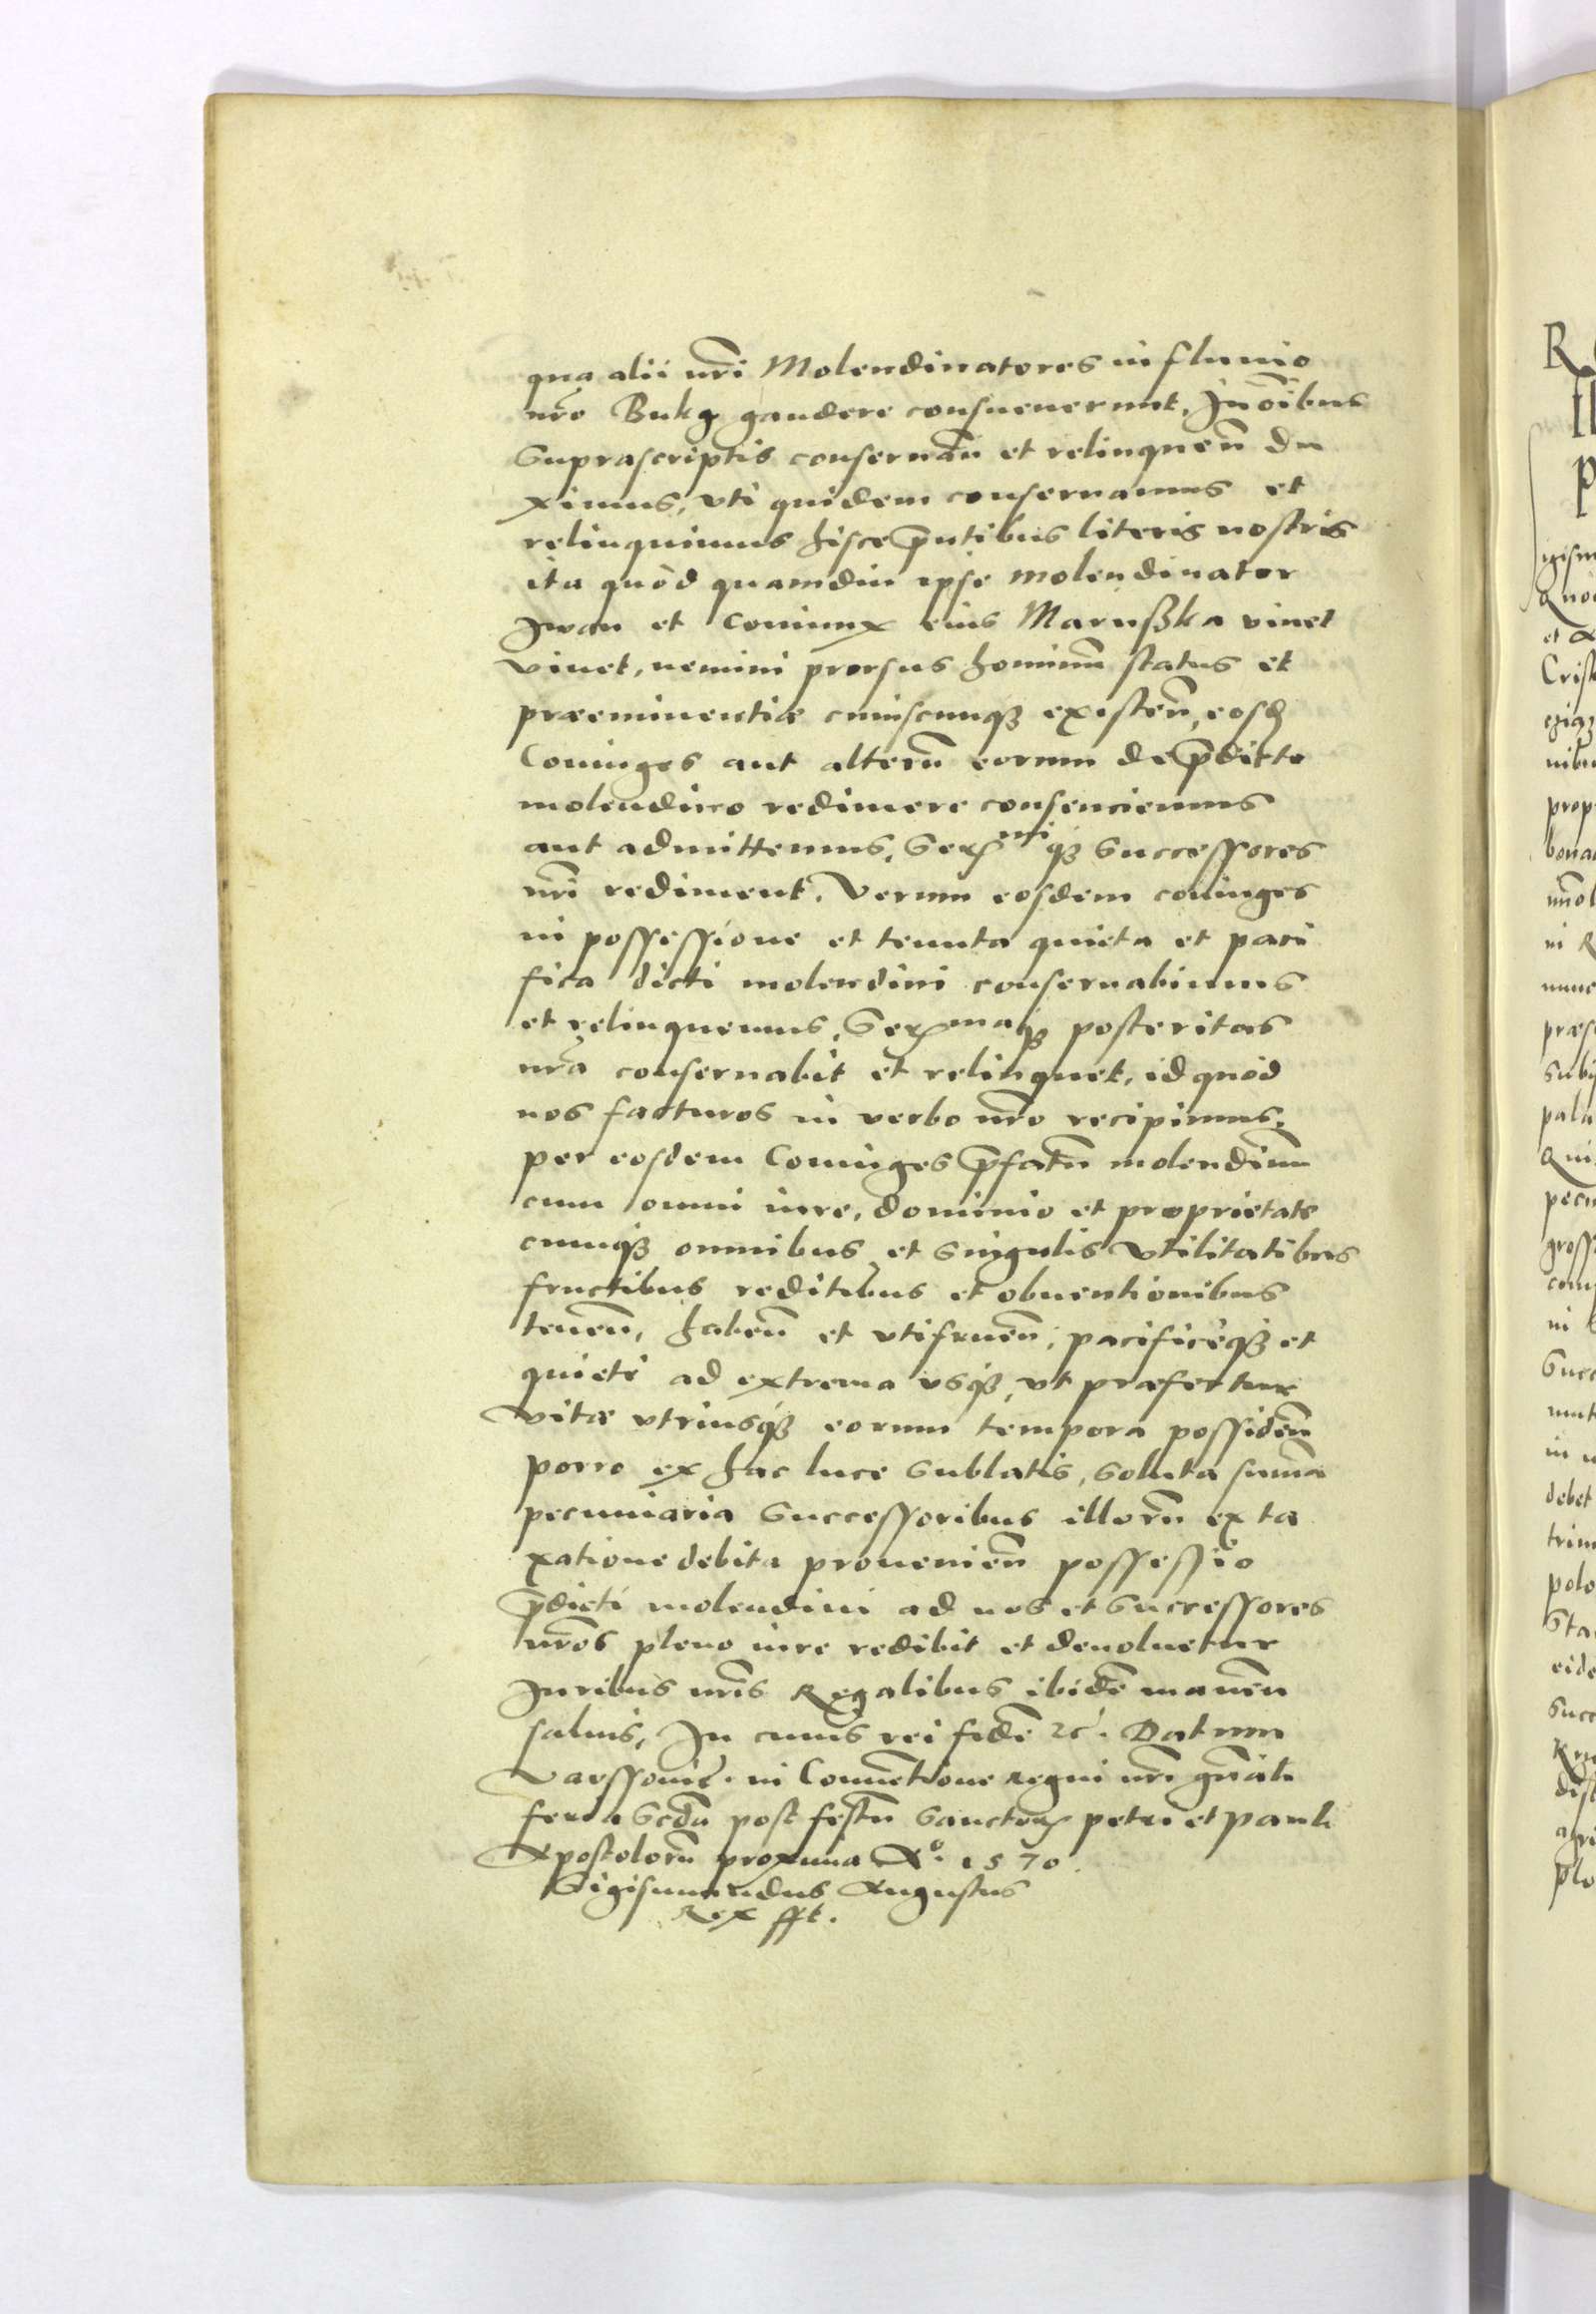 qua alii nr̃i Molendinatores in fluuio
nr̃o Bukg gaudere consueuerunt, In oĩbus
Suprascriptis conseruañ et relinqueñ du
ximus, vti quidem conseruamus et
relinquimus hisce p̃ntibus literis nostris
ita quòd quamdiu ipse molendinator
Iwan et Coniunx eius Marußka viuet
viuet, nemini prorsus hominũ status et
præeminentiæ cuiuscunqȝ existeñ, eosd
Coniuges aut alterũ eorum de p̃dicto
molendino redimere consenciemus
aut admittemus, Serͫⁱqȝ Successores
nr̃i rediment. Verum eosdem coniuges
in possessione et tenuta quieta et paci
fica dicti molendini conseruabimus
et relinquemus, Serᵐᵃqȝ posteritas
nr̃a conseruabit et relinquet, id quod
nos facturos in verbo nr̃o recipimus,
per eosdem Coniuges p̃fatũ molendinũ
cum omni iure, dominio et proprietate
cumqȝ omnibus et singulis vtilitatibus
fructibus reditibus et obuentionibus
teneñ, habeñ et vtifrueñ, pacificèqȝ et
quietè ad extrema vsqȝ, vt præfertur
vitæ vtriusqȝ eorum tempora possideñ
porro ex hac luce sublatis, soluta sum̃a
pecuniaria Successoribus illorũ ex ta
xatione debita prouenieñ possessio
p̃dicti molendini ad nos et Successores
nr̃os pleno iure redibit et deuoluetur
Iuribus nr̃is Regalibus ibidẽ maneñ
saluis, In cuius rei fidẽ ꝛc̃. Datum
Varssouię. in Conuẽtione regni nr̃i gñali
feria Scdã post festũ Sanctorꝝ petri et pauli
Apostolorũ proxima Aº. 1570.
Sigismundus Augustus
Rex sst.